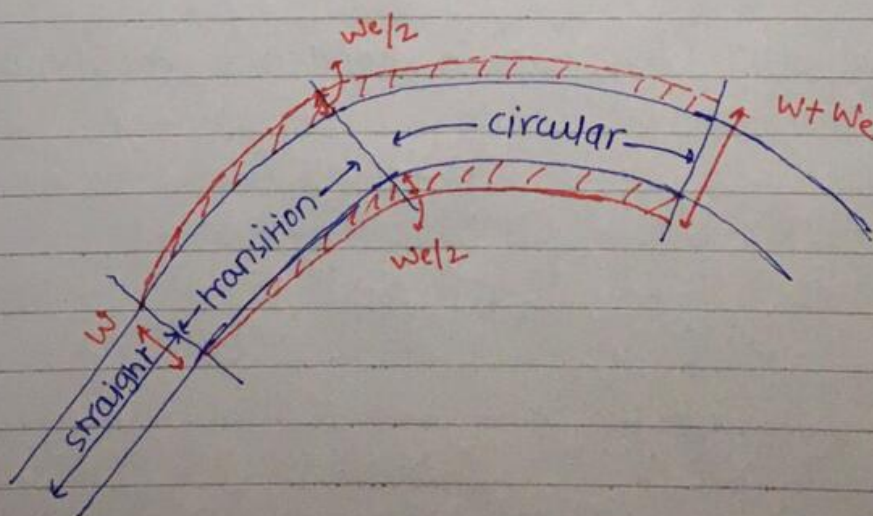 We/2
circular
W+We
transition
We/2
W
straight